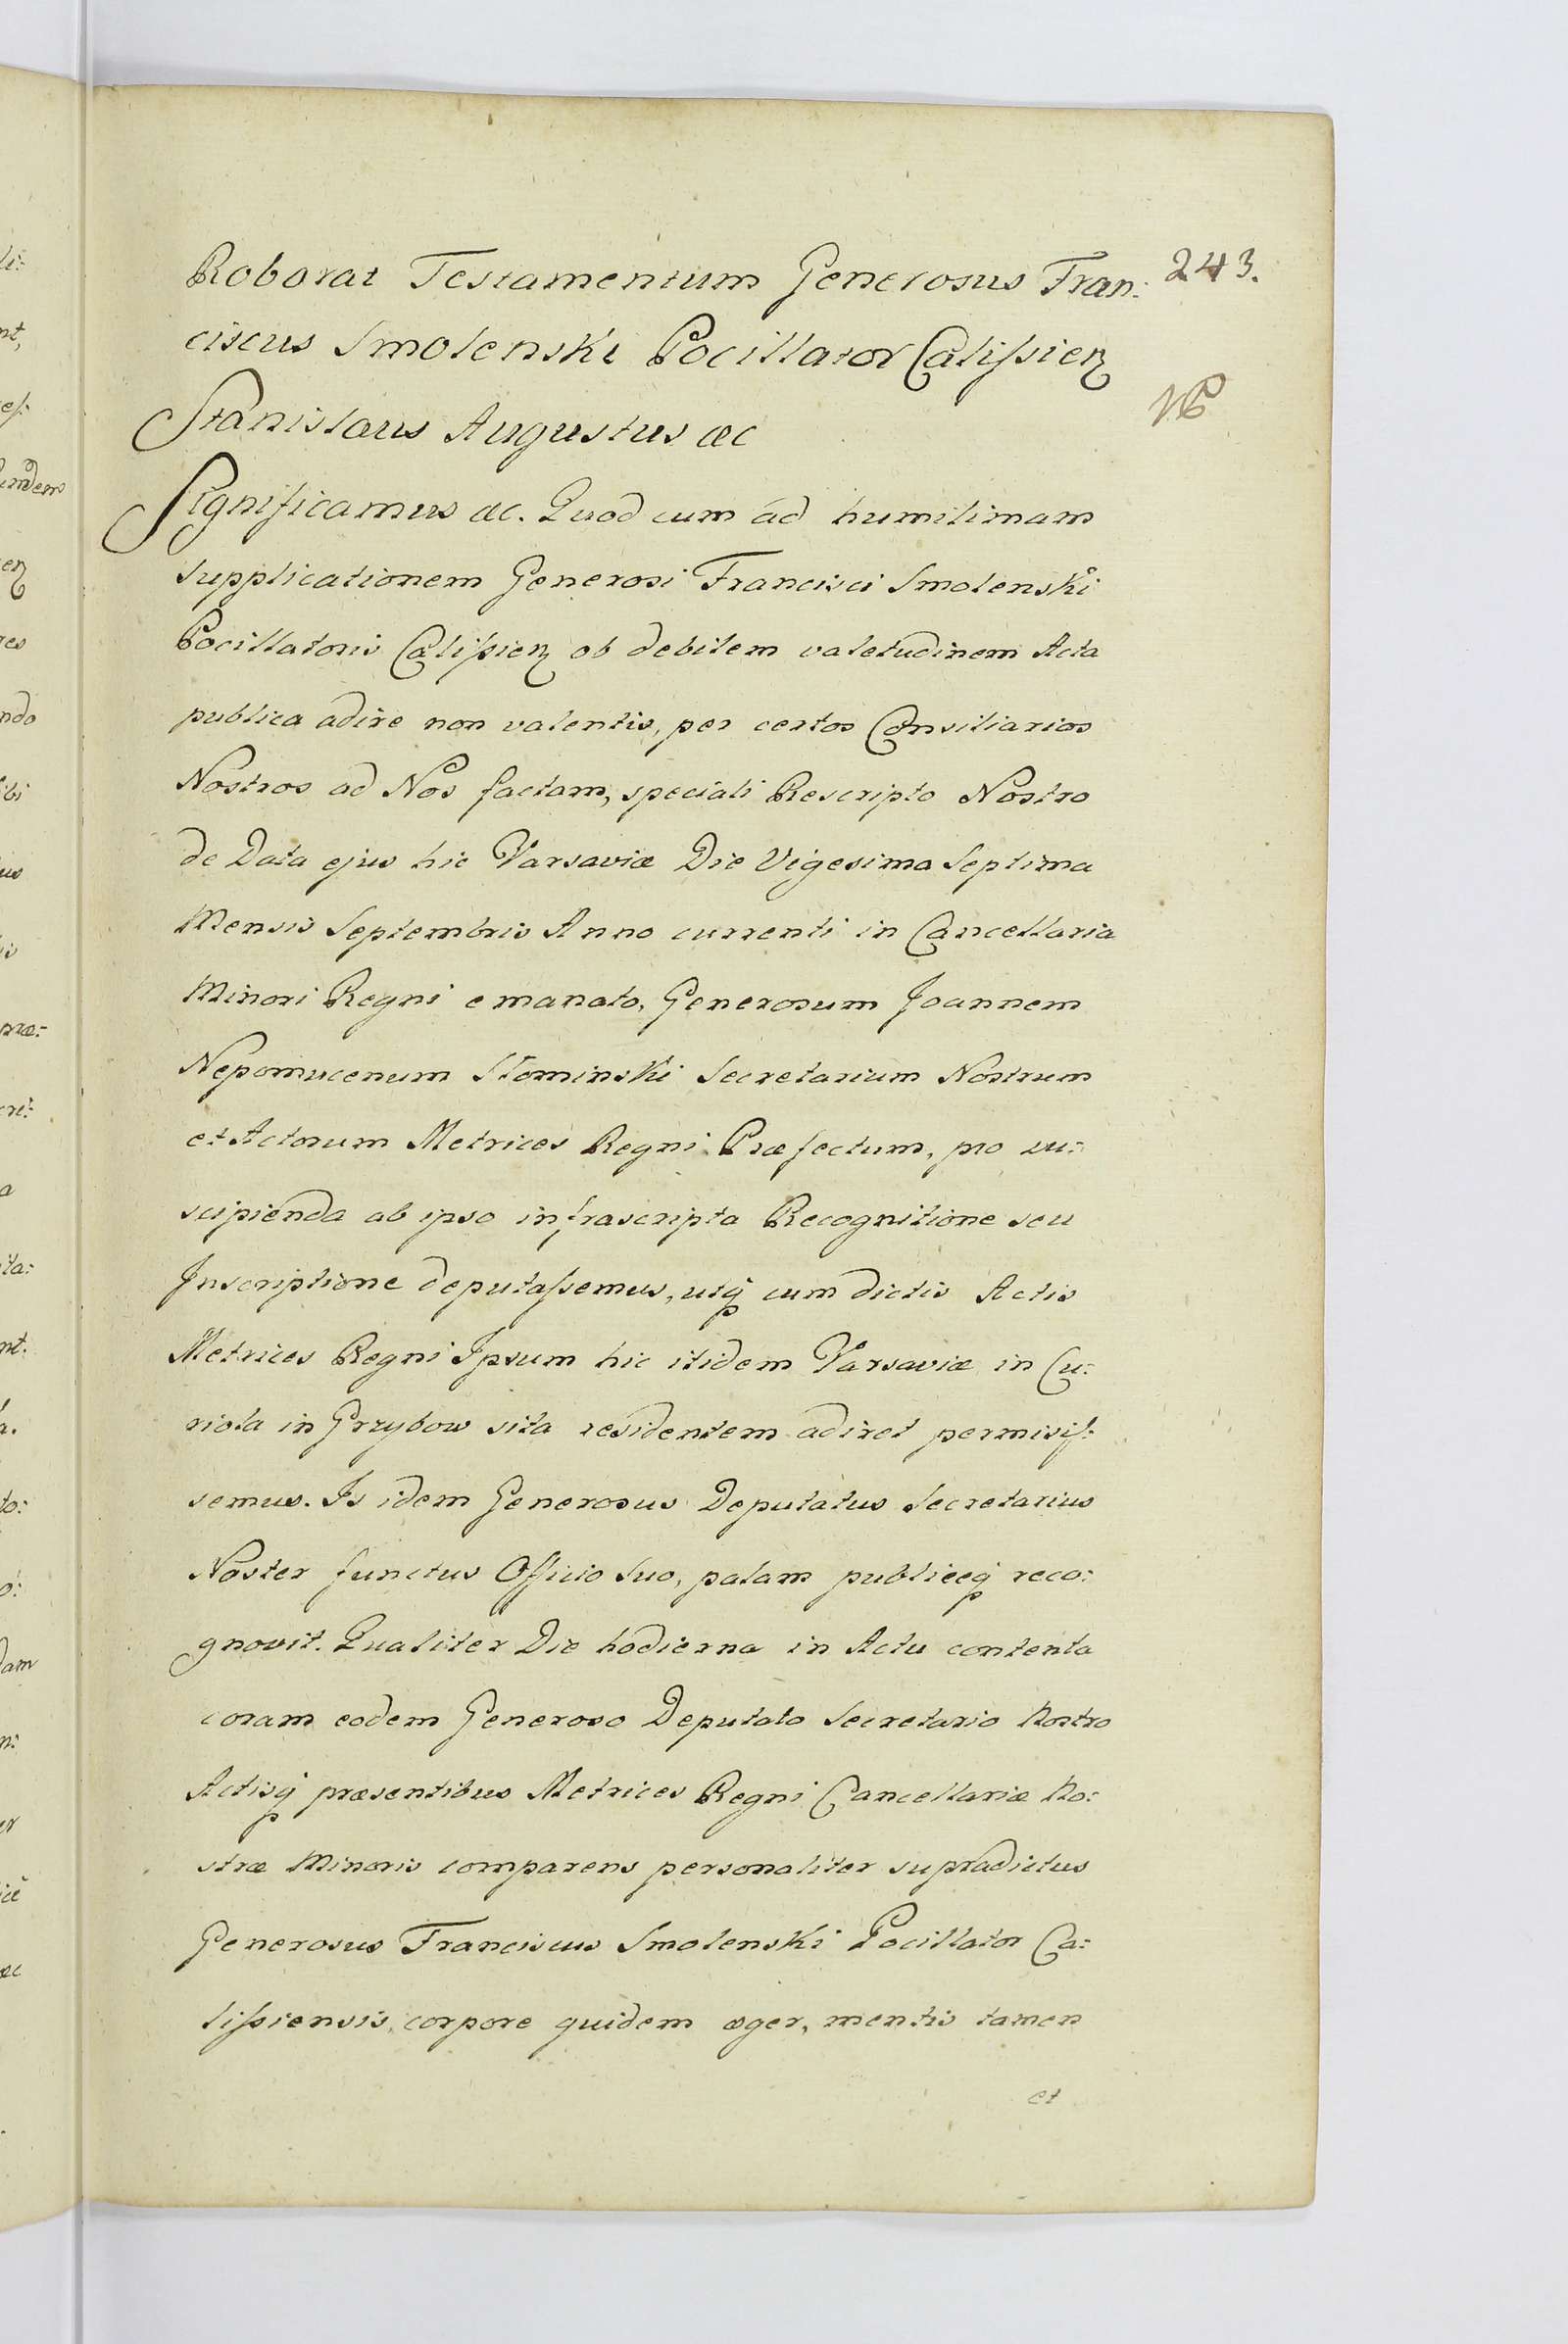 243.
Roborat Testamentum Generosus Fran:
ciscus Smolenski Pocillator Calissien
Stanislaus Augustus &c
Significamus &c. Quod cum ad humilimam
supplicationem Generosi Francisci Smolenski
Pocillatoris Calissien ob debilem valetudinem Acta
publica adire non valentis, per certos Consiliarios
Nostros ad Nos factam, speciali Rescripto Nostro
de Data ejus hic Varsaviæ Die Vigesima Septima
Mensis Septembris Anno currenti in Cancellaria
Minori Regni emanato, Generosum Joannem
Nepomucenum Słominski Secretarium Nostrum
et Actorum Metrices Regni Præfectum, pro su:
scipienda ab ipso infrascripta Recognitione seu
Inscriptione deputassemus, utq cum dictis Actis
Metrices Regni Ipsum hic itidem Varsaviæ in Cu:
riola in Grzybow sita residentem adiret permisis:
semus. Is idem Generosus Deputatus Secretarius
Noster functus Officio Suo, palam publiceq reco:
gnovit. Qualiter Die hodierna in Actu contenta
coram eodem Generoso Deputato Secretario Nostro
Actisq præsentibus Metrices Regni Cancellariæ No:
stræ Minoris comparens personaliter supradictus
Generosus Franciscus Smolenski Pocillator Ca:
lissiensis, corpore quidem æger, mentis tamen
et